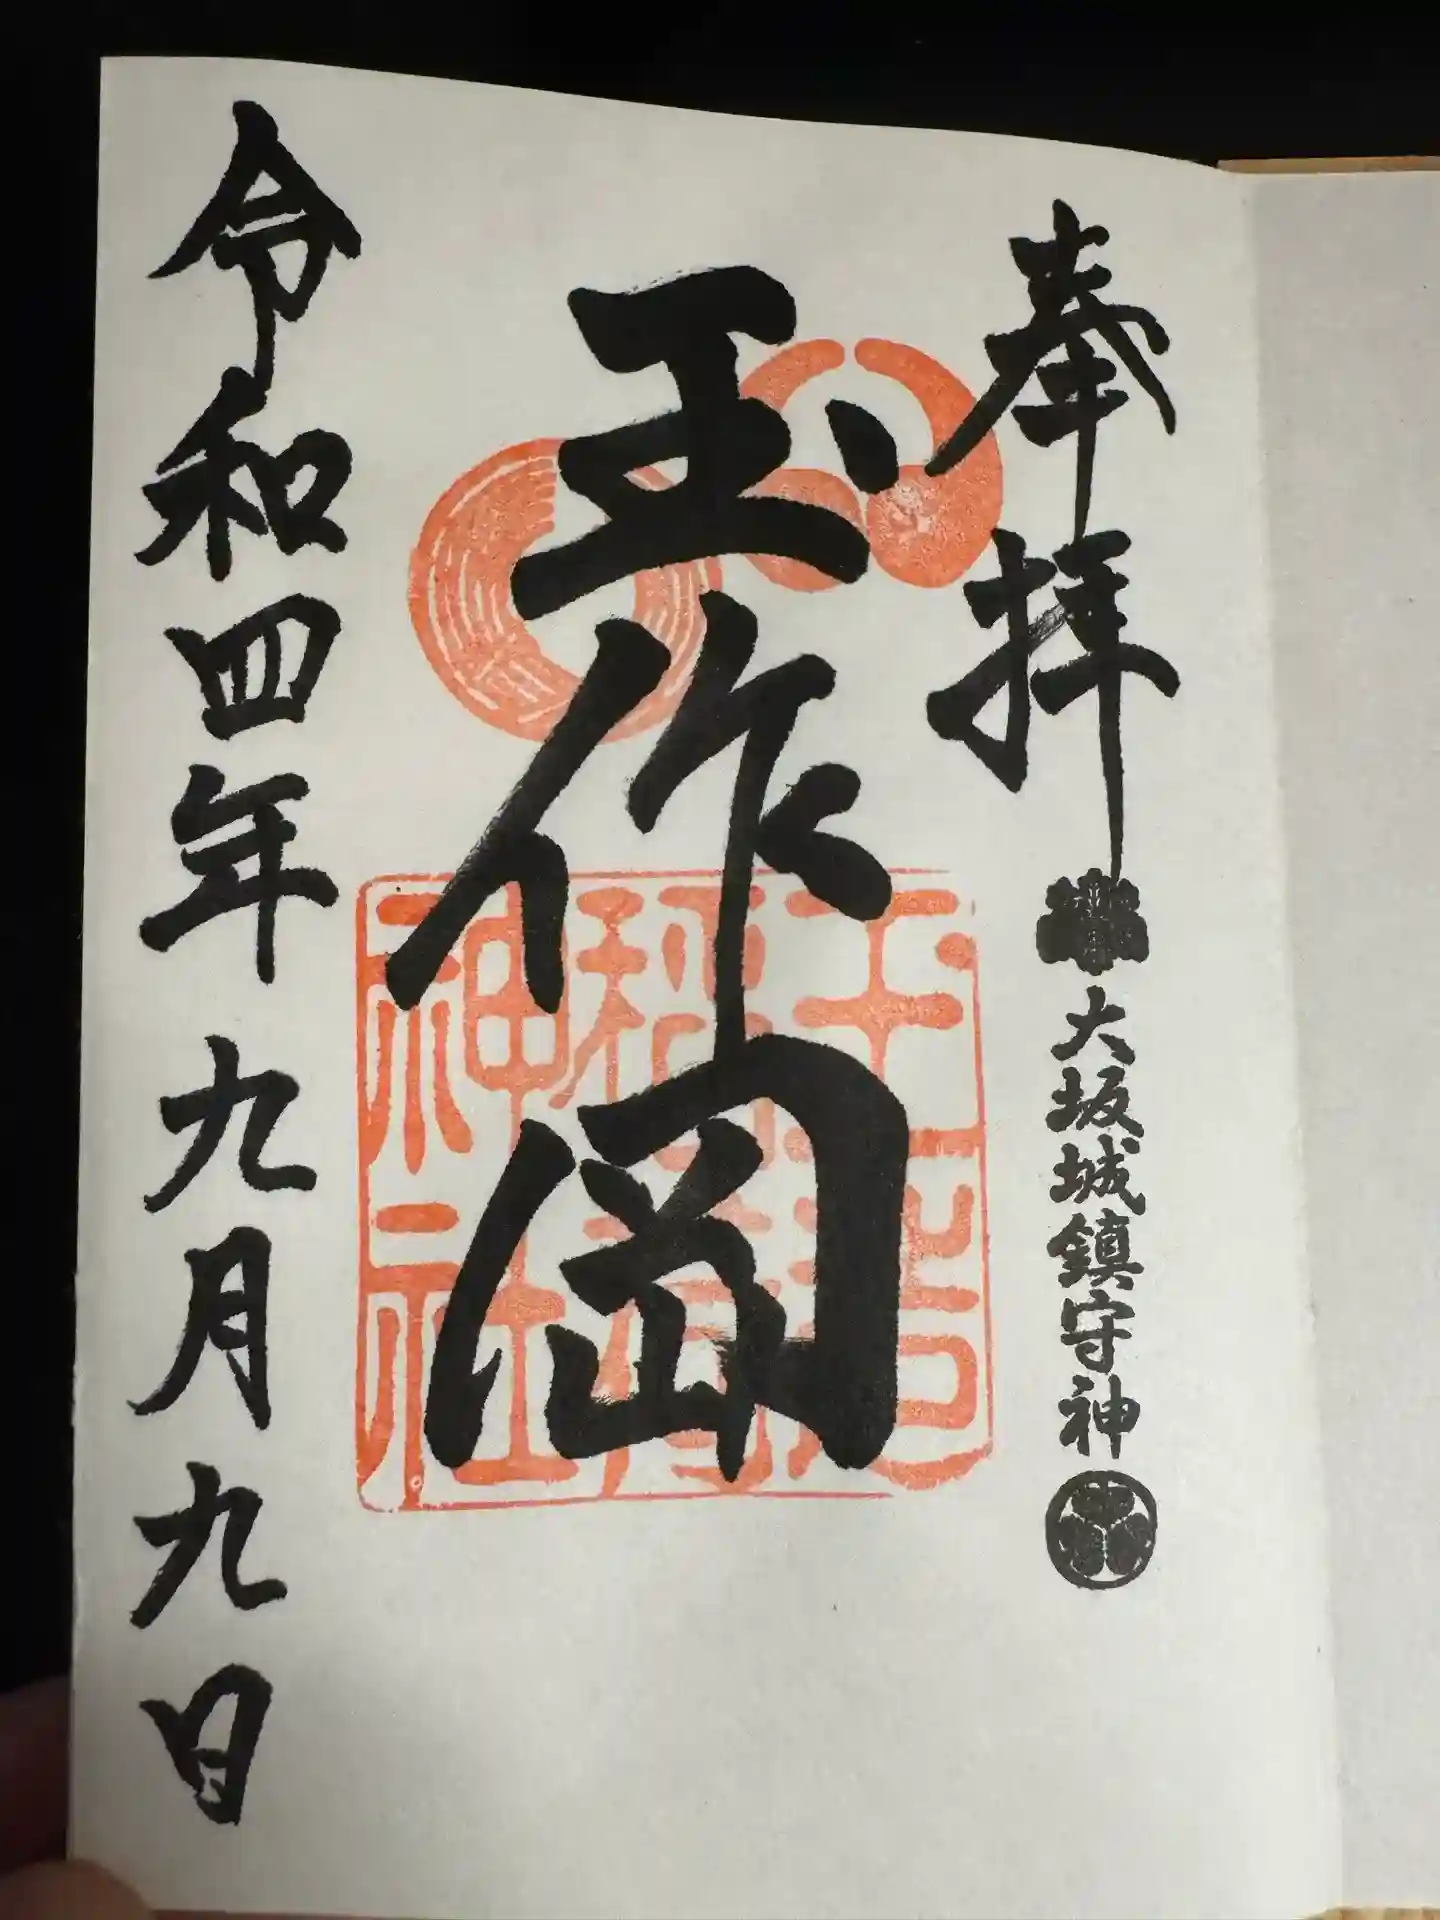 奉拝
大坂城鎮守神
玉作岡
玉造
稲荷
神社
令和四年九月九日